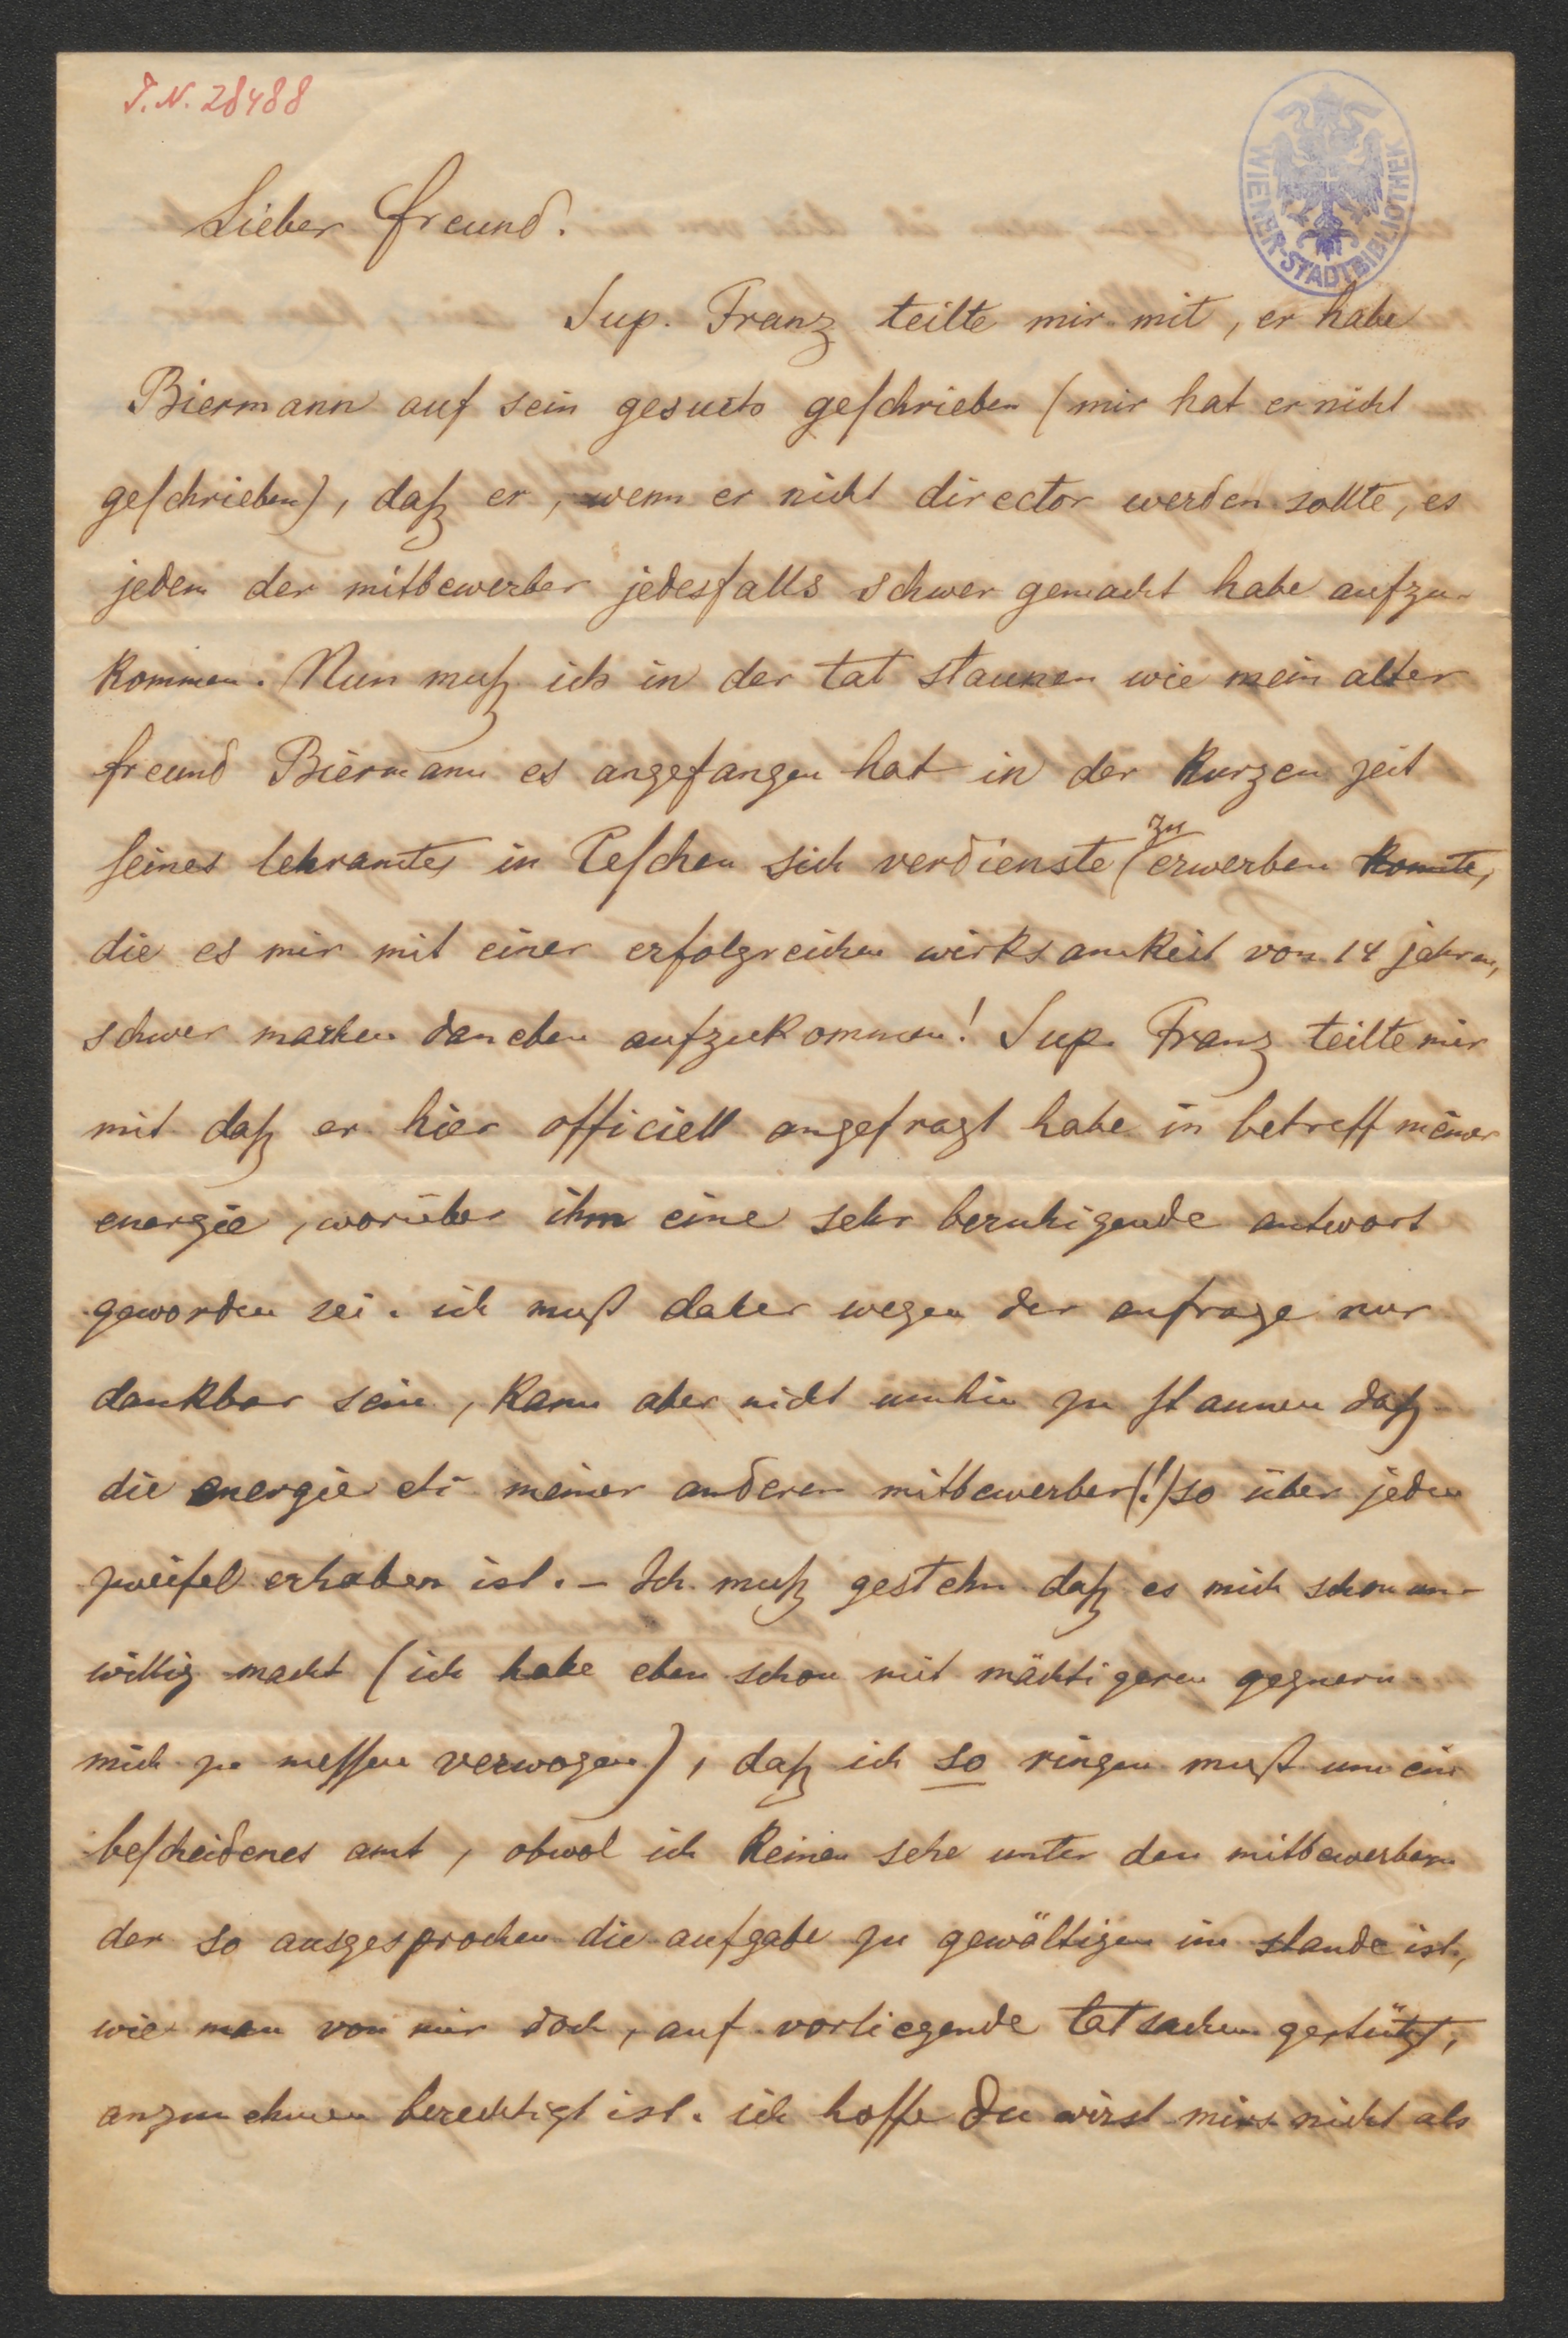 I.N. 28488
WIENER-STADTBIBLIOTHEK
Lieber freund.
Sup. Franz teilte mir mit, er habe
Biermann auf sein gesuch geschrieben (mir hat er nicht
geschrieben), daß er, wenn er nicht director werden sollte, es
jedem der mitbewerber jedesfalls schwer gemacht habe aufzu-
kommen. Nun muß ich in der tat staunen wie mein alter
freund Biermann es angefangen hat in der kurzen zeit
seines lehramtes in Teschen sich verdienste (zu erwerben konnte,
die es mir mit einer erfolgreichen wirksamkeit von 14 jahren,
schwer machen daneben aufzukommen! Sup. Franz teilte mir
mit daß er hier officiell angefragt habe in betreff meiner
energie, worüber ihm eine sehr beruhigende antwort
geworden sei. ich muß daher wegen der anfrage nur
dankbar sein, kann aber nicht umhin zu staunen daß
die energie meiner anderen mitbewerber (!) so über jeden
zweifel erhaben ist. – Ich muß gestehn daß es mich schon un-
willig macht (ich habe eben schon mit mächtigeren gegnern
mich zu messen verwogen), daß ich so ringen muß um ein
bescheidenes amt, obwol ich keinen sehe unter den mitbewerbern
der so ausgesprochen die aufgabe zu gewältigen im stande ist,
wie man von mir doch, auf vorliegende tatsachen gestützt,
anzunehmen berechtigt ist. ich hoffe Du wirst mirs nicht als